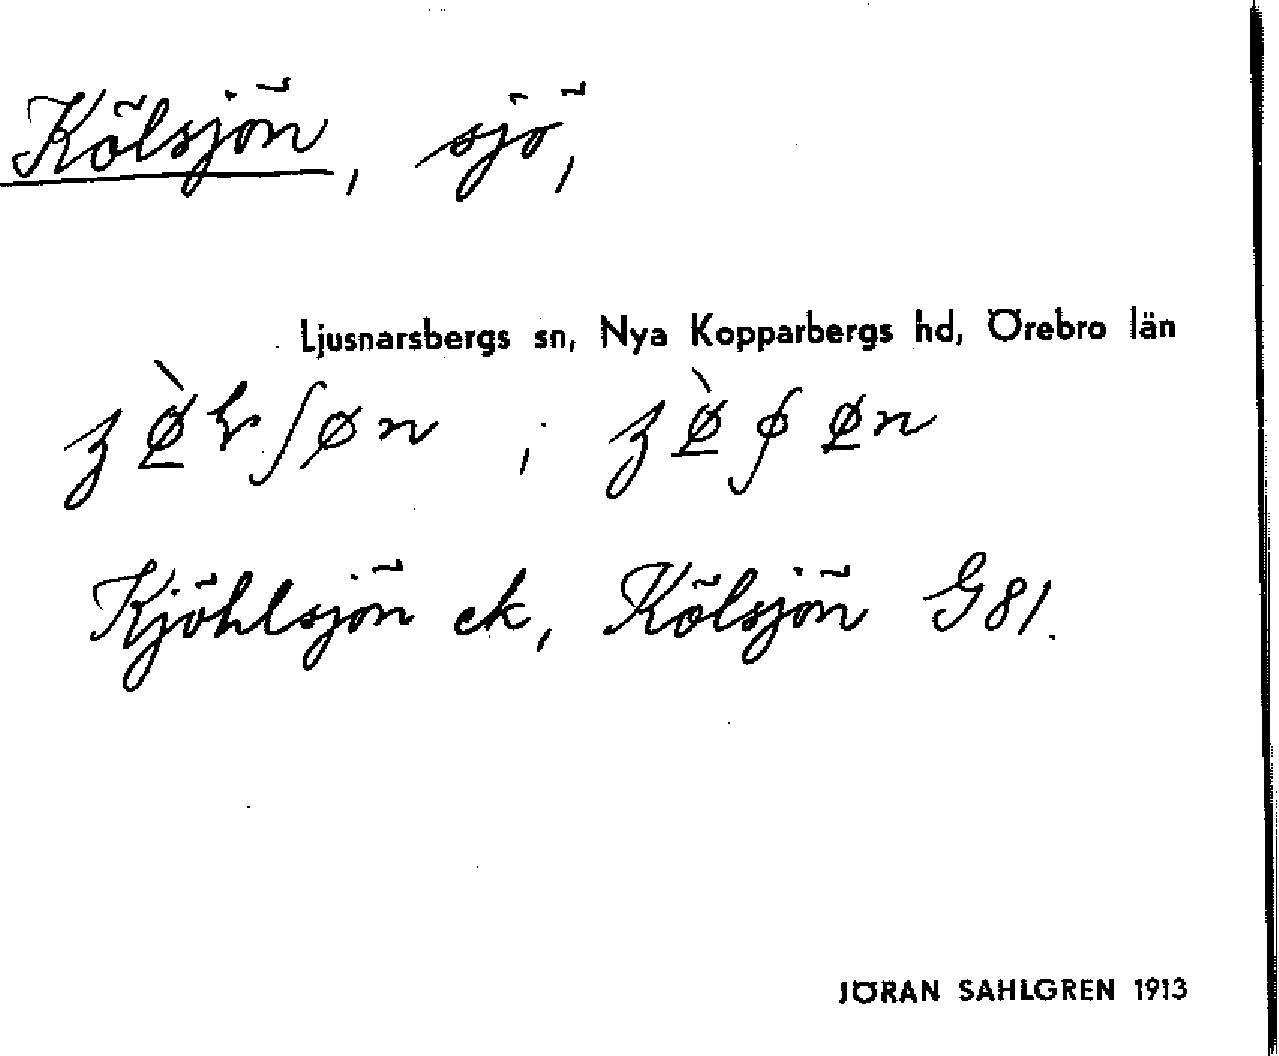 Kölsjön, sjö,
Ljusnarsbergs sn, Nya Kopparbergs hd, Örebro län
Kjöhlsjön ek, Kölsjön G81.
JÖRAN SAHLGREN 1913